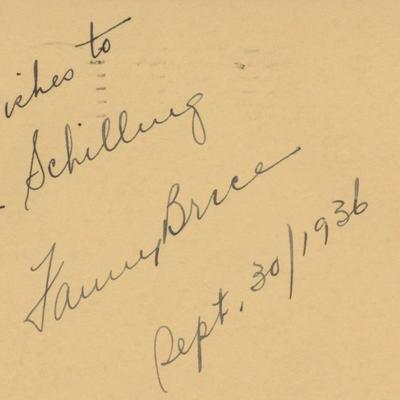 ishes to
Schilling
Fanny Brice
Sept. 30/1936